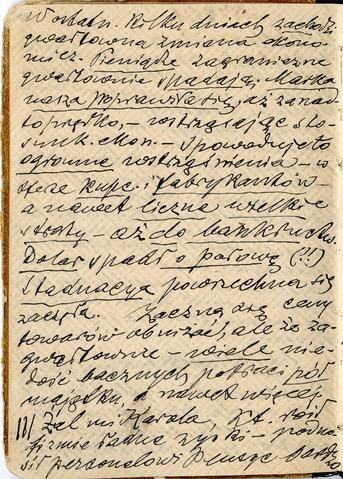 W ostatn. kilku dniach zachodzi
gwałtowna zmiana ekono-
micz. Pieniądze zagraniczne
gwałtownie spadają. Marka
nasza poprawiła się, aż zanad-
to prędko, – wstrząsając sto-
sunk. ekon. – spowoduje to
ogromne wstrząśnienia – w
sferze kupc. i fabrykantów –
a nawet liczne wielkie
straty – aż do bankructw.
Dolar spadł o połowę (!!)
Stagnacya powszechna się
zaczęła. Zaczną się ceny
towarów obniżać, ale że za
gwałtownie – wiele nie-
dość bacznych potraci pół
majątku, a nawet więcej.
Żal mi Karola, kt. robił
firmie ładne zyski – podno-
sił personelowi pensye bardzo